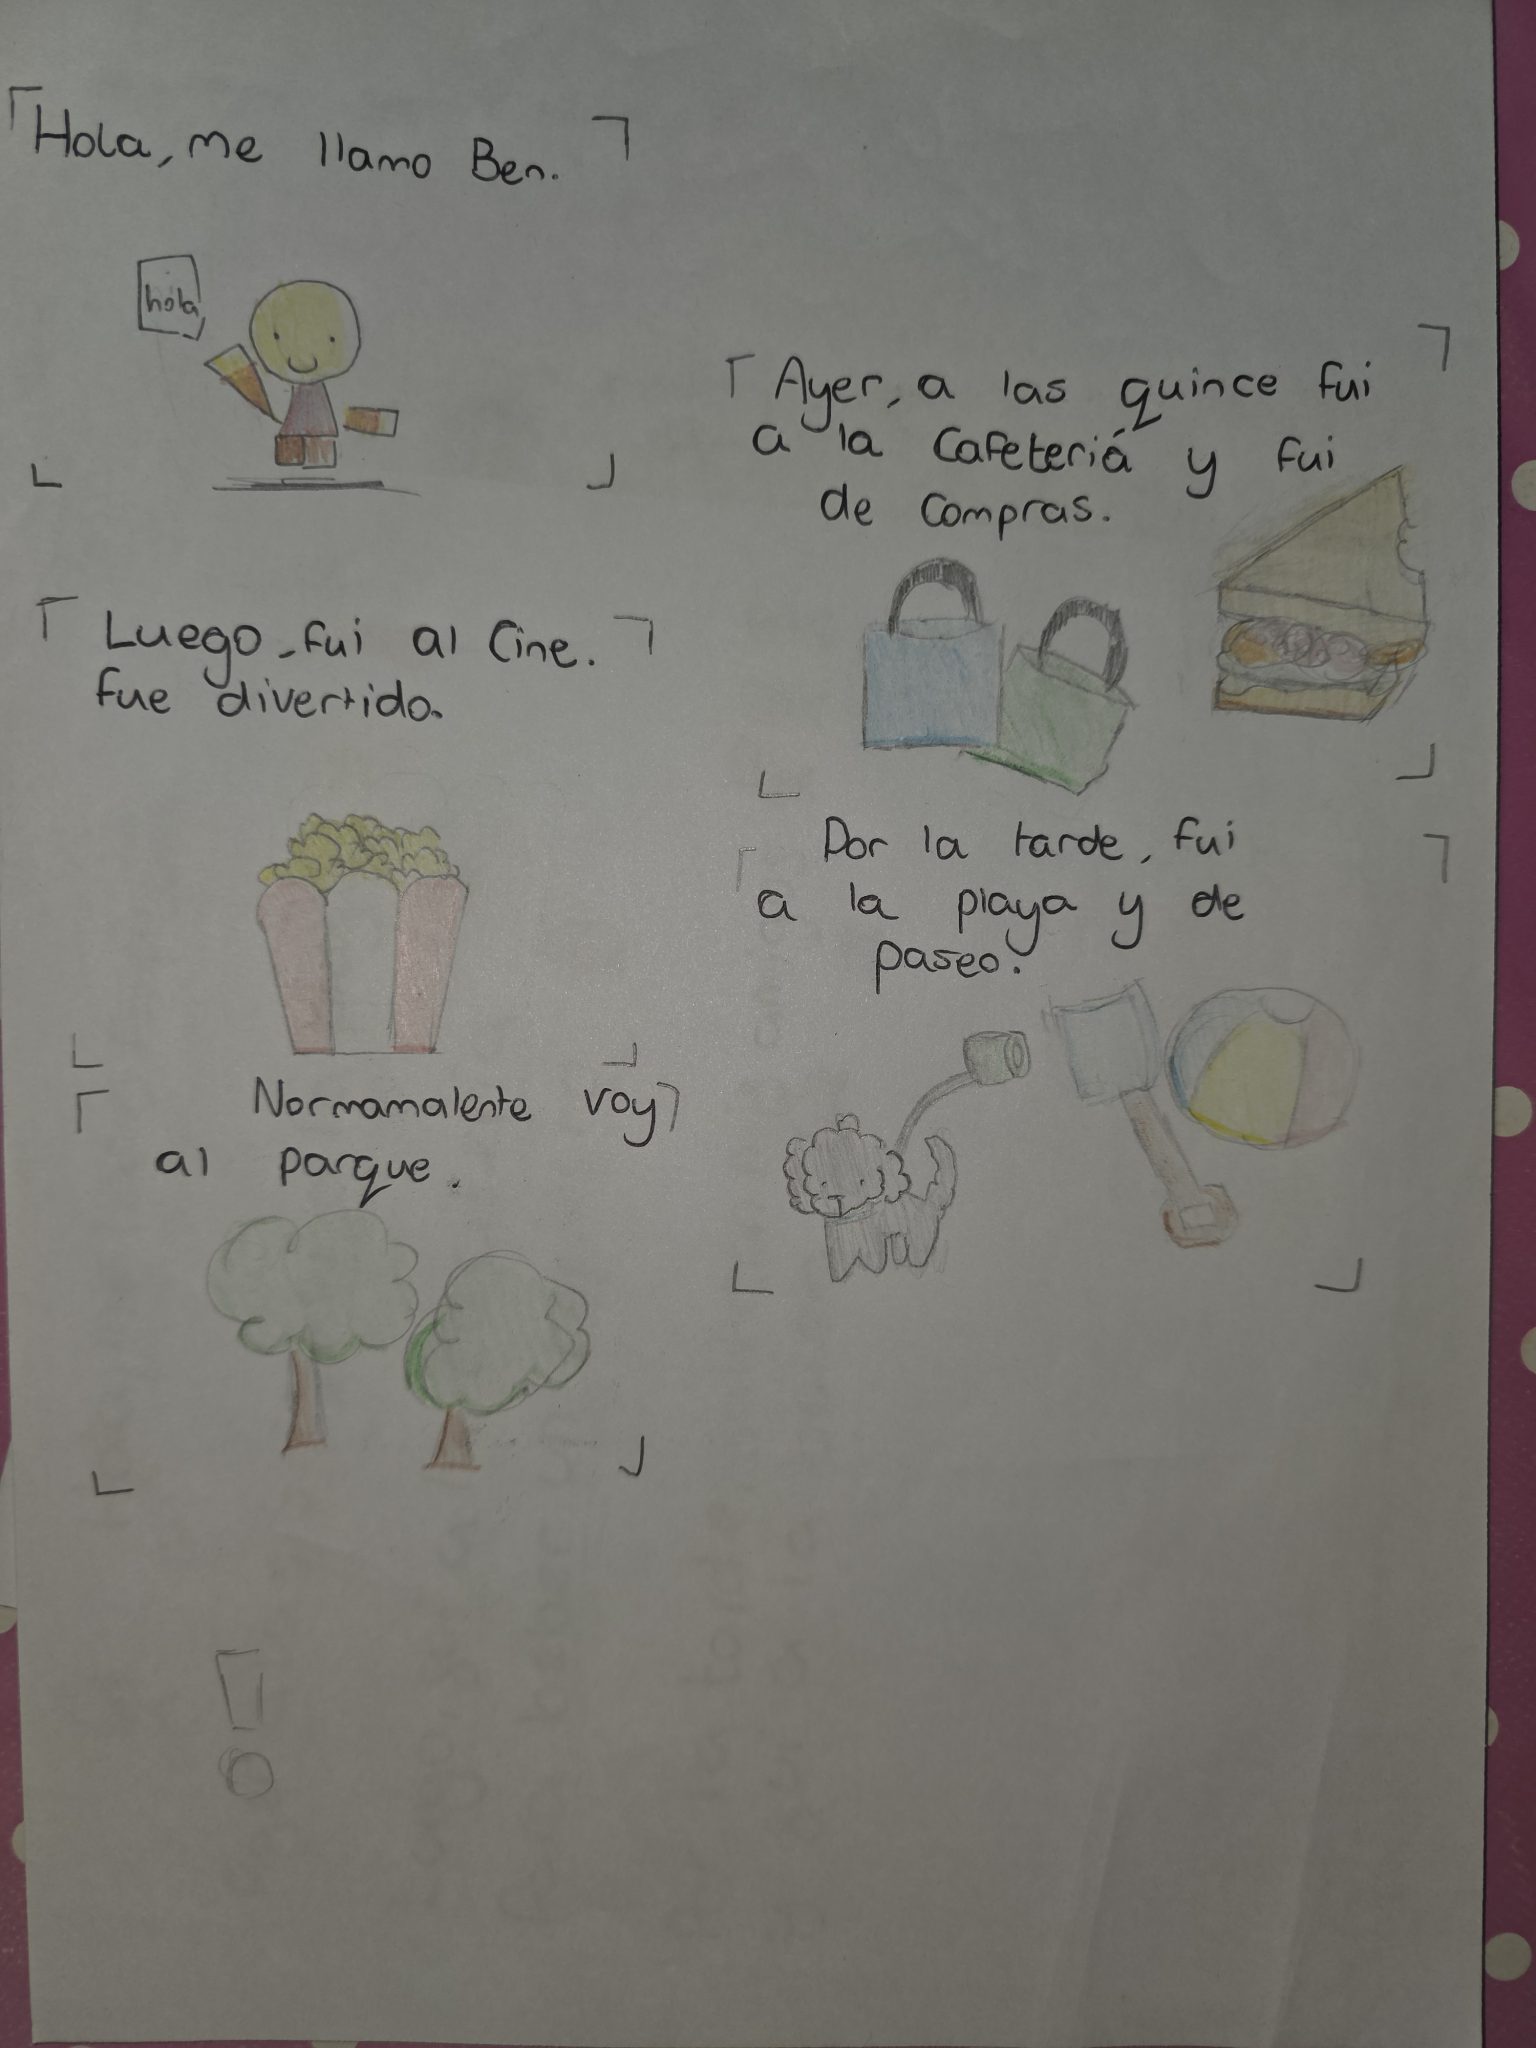 Hola, me llamo Ben.
hola
Ayer, a las quince fui
a la cafeteriá y fui
de compras.
Luego, fui al cine.
fue divertido.
Por la tarde, fui
a la playa y de
paseo.
Normamalente voy
al parque.
!